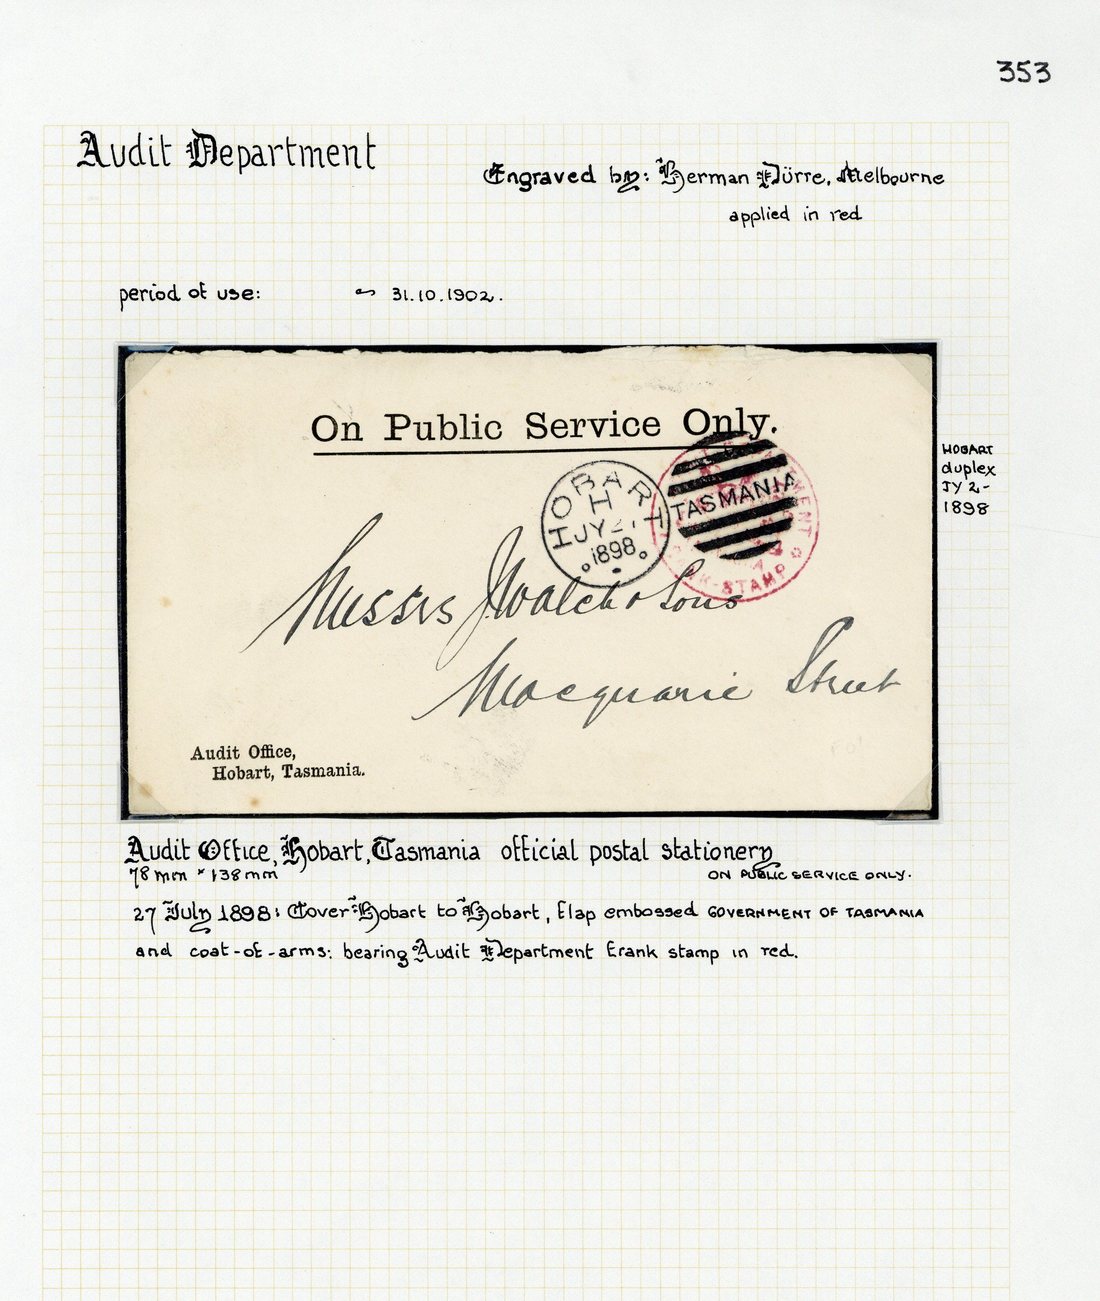 353
Audit Department
Engraved by: Herman Dürre, Melbourne
applied in red
period of use: ~ 31.10.1902.
On Public Service Only.
HOBART
H
JY 2
1898
TASMANIA
FRANK-STAMP
HOBART
duplex
JY 2-
1898
Messrs J Walch & Sons
Macquarie Street
Audit Office,
Hobart, Tasmania.
Audit Office, Hobart, Tasmania official postal stationery
78mm x 138mm
ON PUBLIC SERVICE ONLY.
27 July 1898: Cover Hobart to Hobart, flap embossed GOVERNMENT OF TASMANIA
and coat-of-arms: bearing Audit Department frank stamp in red.